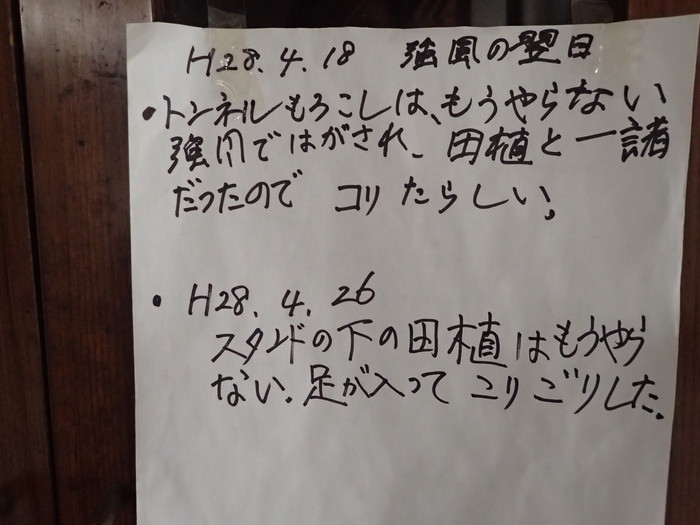 H28.4.18 強風の翌日
・トンネルもろこしは、もうやらない
強風ではがされ、田植と一諸
だったので コリたらしい。
・H28.4.26
スタンドの下の田植はもうやら
ない。足が入って コリゴリした。